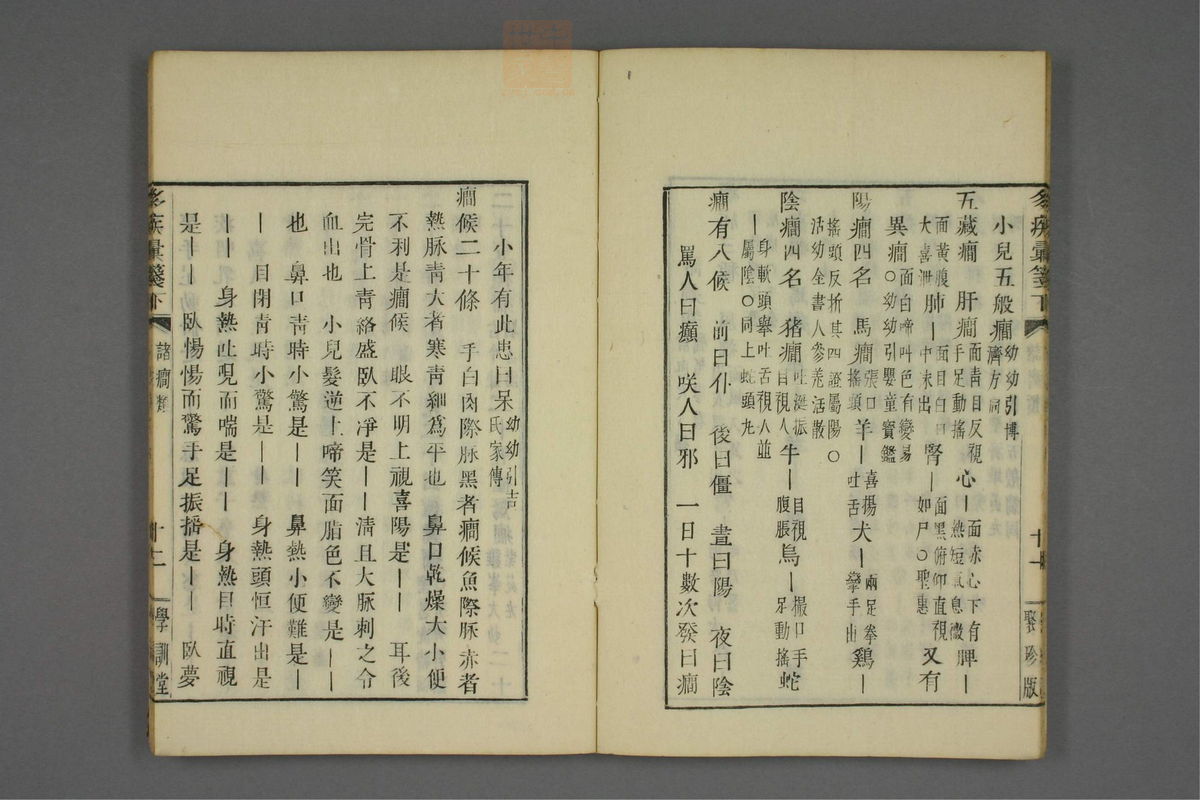 小兒五般癇幼幼引博濟方祠
五藏癇　肝癇面青目反視手足動搖　心｜面赤心下有熱短氣息微　脾｜
面黃腹大喜泄　肺｜面目白口中末出　腎｜面黑俯仰直視如尸〇聖惠　又有
異癇面白啼叫色有變易〇幼幼引嬰童寶鑑
陽癇四名　馬癇張口搖頭　羊｜喜揚吐舌　犬｜兩足拳攣手曲　鷄｜
搖頭反折其四證屬陽〇活幼全書人參羌活散
陰癇四名　猪癇吐涎振目視人　牛｜目視腹脹　烏｜撮口手足動搖　蛇
｜身軟頭舉吐舌視人並屬陰〇同上蛇頭丸
癇有八候　前曰仆　後曰僵　晝曰陽　夜曰陰
罵人曰癲　咲人曰邪　一日十數次發曰癇
疾彙箋下　諸癇　十一　聚珍版
小年有此患曰呆幼幼引吉氏家傳
癇候二十條　手白肉際脉黑者癇候魚際脉赤者
熱脉靑大者寒靑細爲平也　鼻口乾燥大小便
不利是癇候　眼不明上視喜陽是｜｜　耳後
完骨上靑絡盛臥不凈是｜｜淸且大脈刺之令
血出也　小兒髮逆上啼笑面脂色不變是｜｜
也　鼻口靑時小驚是｜｜　鼻熱小便難是｜
｜　目閉靑時小驚是｜｜　身熱頭恒汗出是
｜｜　身熱吐哯而喘是｜｜　身熱目時直視
是｜｜　臥惕惕而驚手足振搖是｜｜　臥夢
疾彙箋下　諸癇　十二　學訓堂